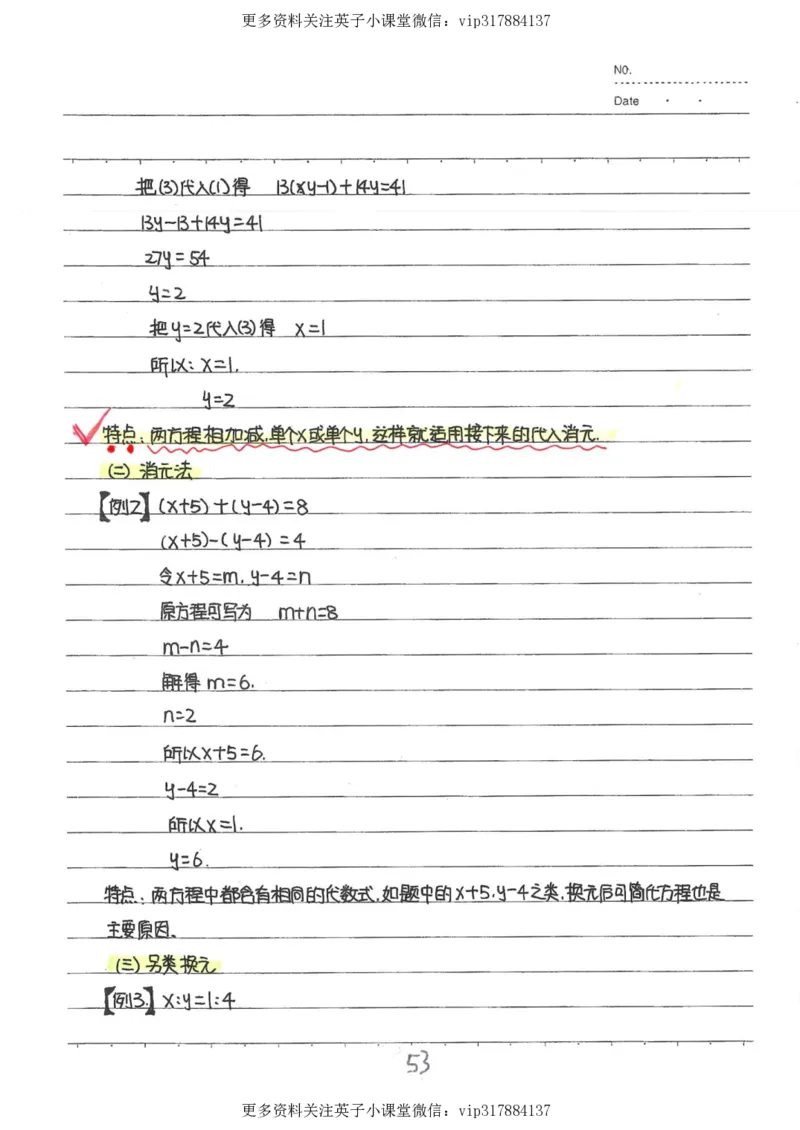 更多资料关注英子小课堂微信：vip317884137
NO.
Date
把(3)代入(1)得 13(xy-1)+14y=41
13y-13+14y=41
27y=54
y=2
把y=2代入(3)得 x=1
所以：x=1.
y=2
特点：两方程相加减,单个x或单个y,这样就适用接下来的代入消元.
(二) 消元法
【例2】(x+5)+(y-4)=8
(x+5)-(y-4)=4
令x+5=m, y-4=n
原方程可写为 m+n=8
m-n=4
解得m=6.
n=2
所以x+5=6.
y-4=2
所以x=1.
y=6.
特点：两方程中都含有相同的代数式,如题中的x+5,y-4之类,换元后可简化方程也是
主要原因、
(三)另类换元
【例3.】x:y=1:4
53
更多资料关注英子小课堂微信：vip317884137